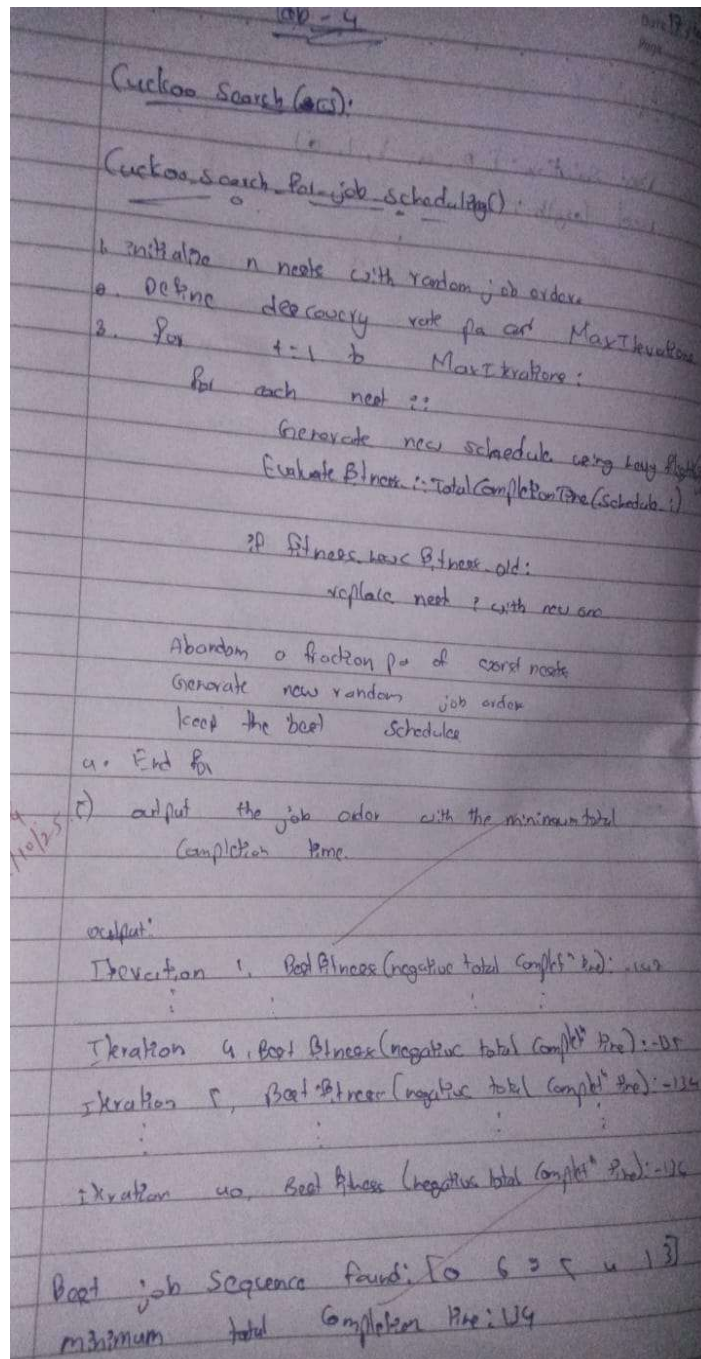 Lab - 4
Date 17
Page
Cuckoo Search (CS):
Cuckoo_search_for_job_scheduling():
1. Initialize n nests with random job orders
2. Define discovery rate pa and MaxIterations
3. For t=1 to MaxIterations:
for each nest i:
Generate new schedule using Levy flights
Evaluate fitness_i = TotalCompletionTime(schedule_i)
if fitness_new < fitness_old:
replace nest i with new one
Abandon a fraction pa of worst nests
Generate new random job order
keep the best schedules
4. End for
5) output the job order with the minimum total
Completion time.
/10/25
output:
Iteration 1, Best Fitness (negative total Complt^n time):
Iteration 4, Best Fitness (negative total Complt^n time):
Iteration 5, Best Fitness (negative total Complt^n time): -134
Iteration 40, Best Fitness (negative total Complt^n time):
Best job Sequence found: [0 6 2 5 4 1 3]
minimum total Completion time: